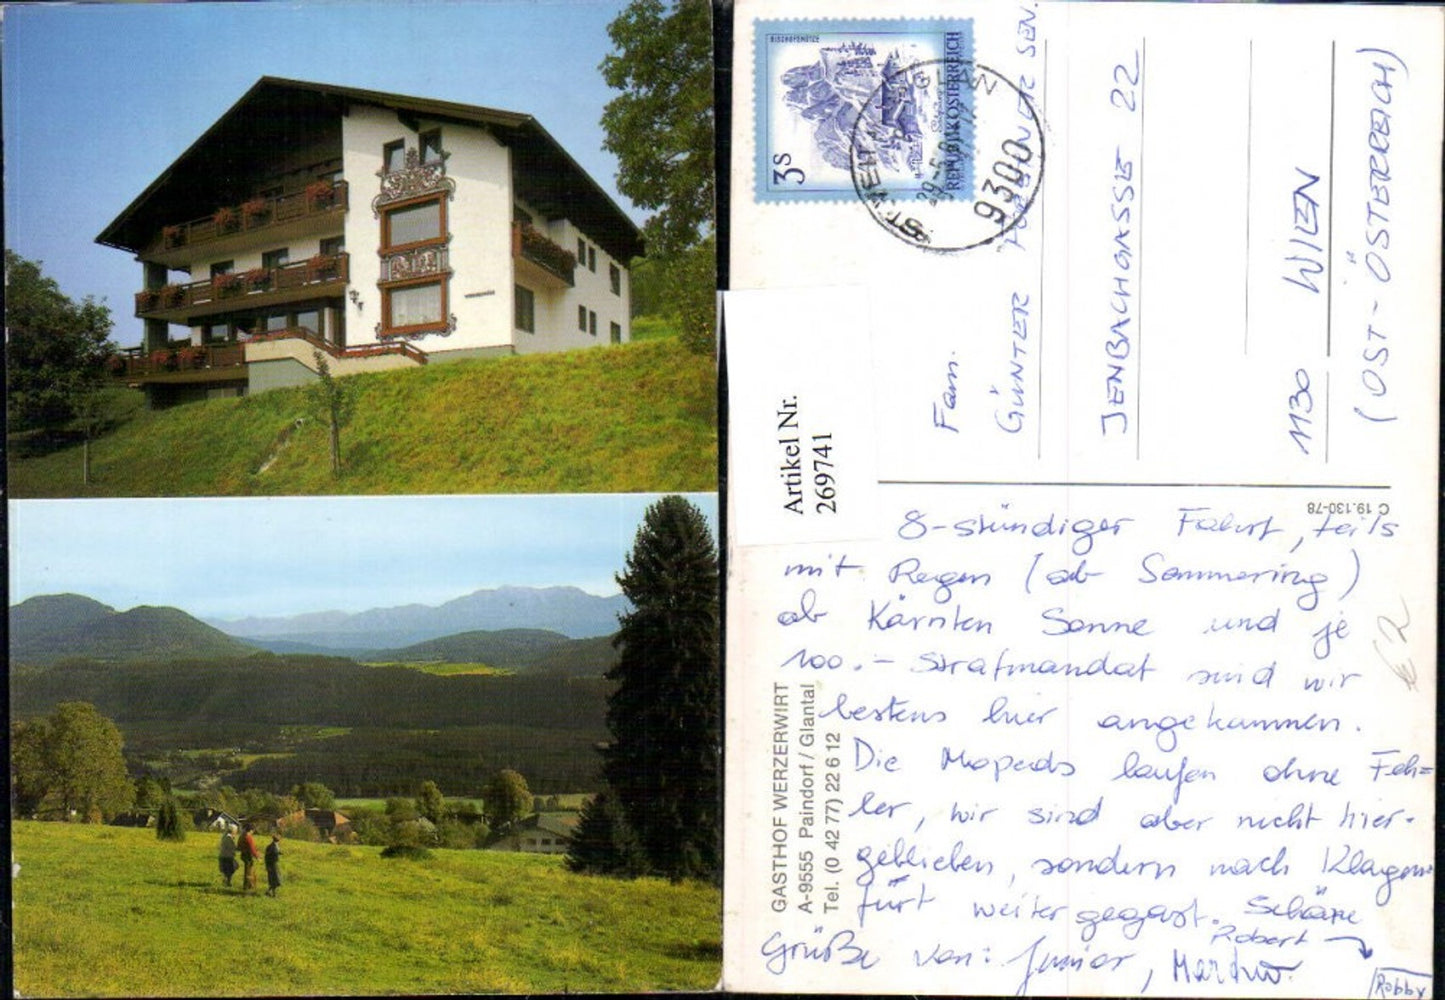 BISCHOFSMÜTZE
3S
REPUBLIK ÖSTERREICH
ST. VEIT
9300
Artikel Nr.
269741
Fam.
GÜNTER SEN.
JENBACHGASSE 22
1130 WIEN
(OST-ÖSTERREICH)
C 19.130-78
8-stündiger Fahrt, teils
mit Regen (ab Semmering)
ab Kärnten Sonne und je
100.- Strafmandat sind wir
bestens hier angekommen.
Die Mopeds laufen ohne Feh=
ler, wir sind aber nicht hier-
geblieben, sondern nach Klagen-
furt weiter gegast. Schöne
Grüße von: Junior, Robert
Robby
€ 2
GASTHOF WERZERWIRT
A-9555 Paindorf / Glantal
Tel. (0 42 77) 22 6 12